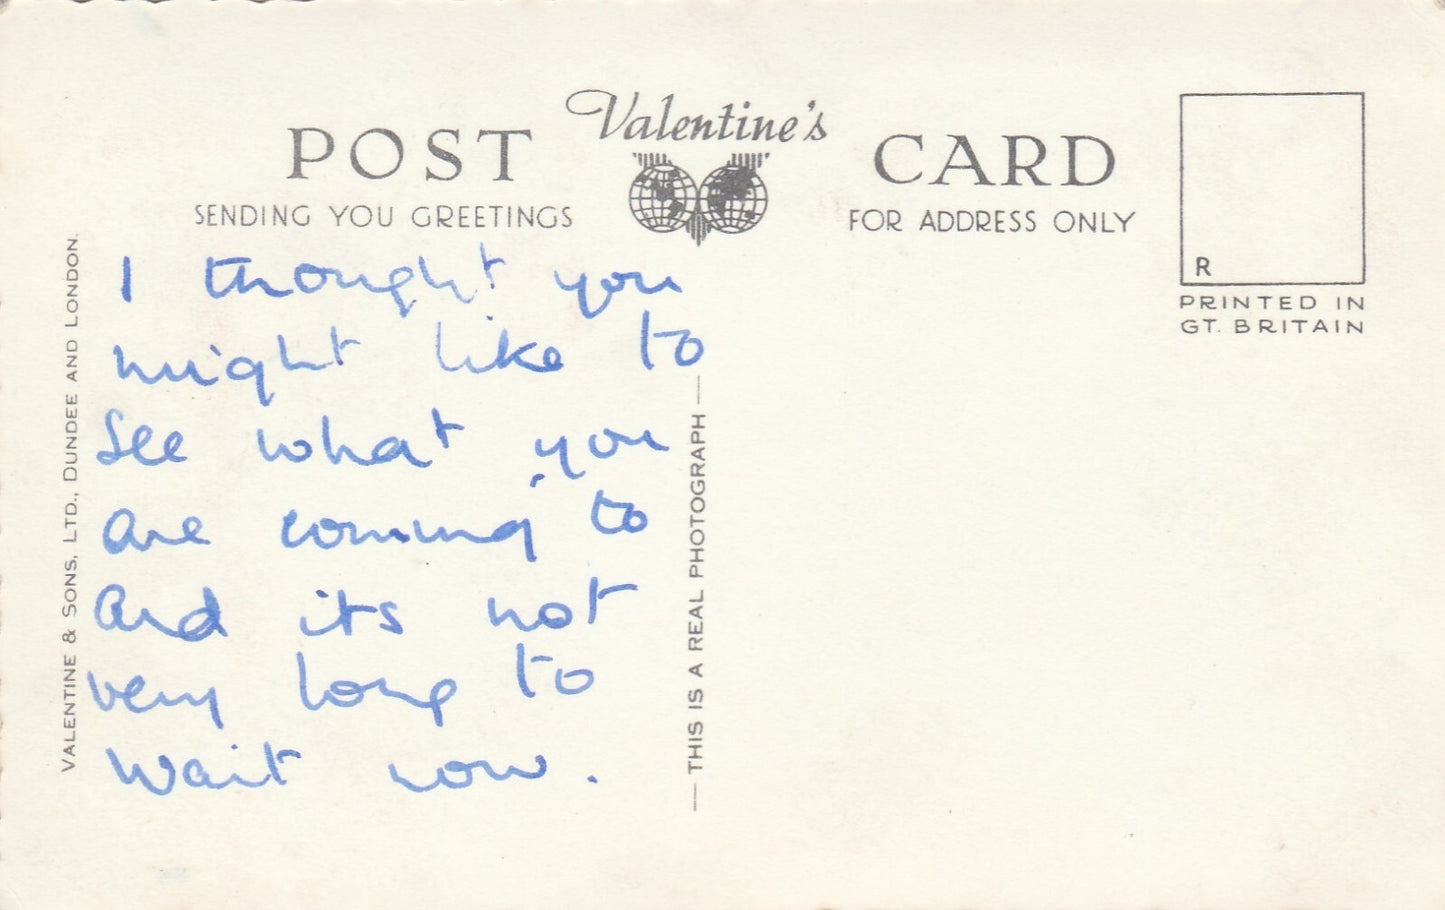 Valentine's
POST CARD
SENDING YOU GREETINGS
FOR ADDRESS ONLY
R
PRINTED IN
GT. BRITAIN
VALENTINE & SONS, LTD., DUNDEE AND LONDON.
I thought you
might like to
see what you
are coming to
and its not
very long to
wait now.
— THIS IS A REAL PHOTOGRAPH —